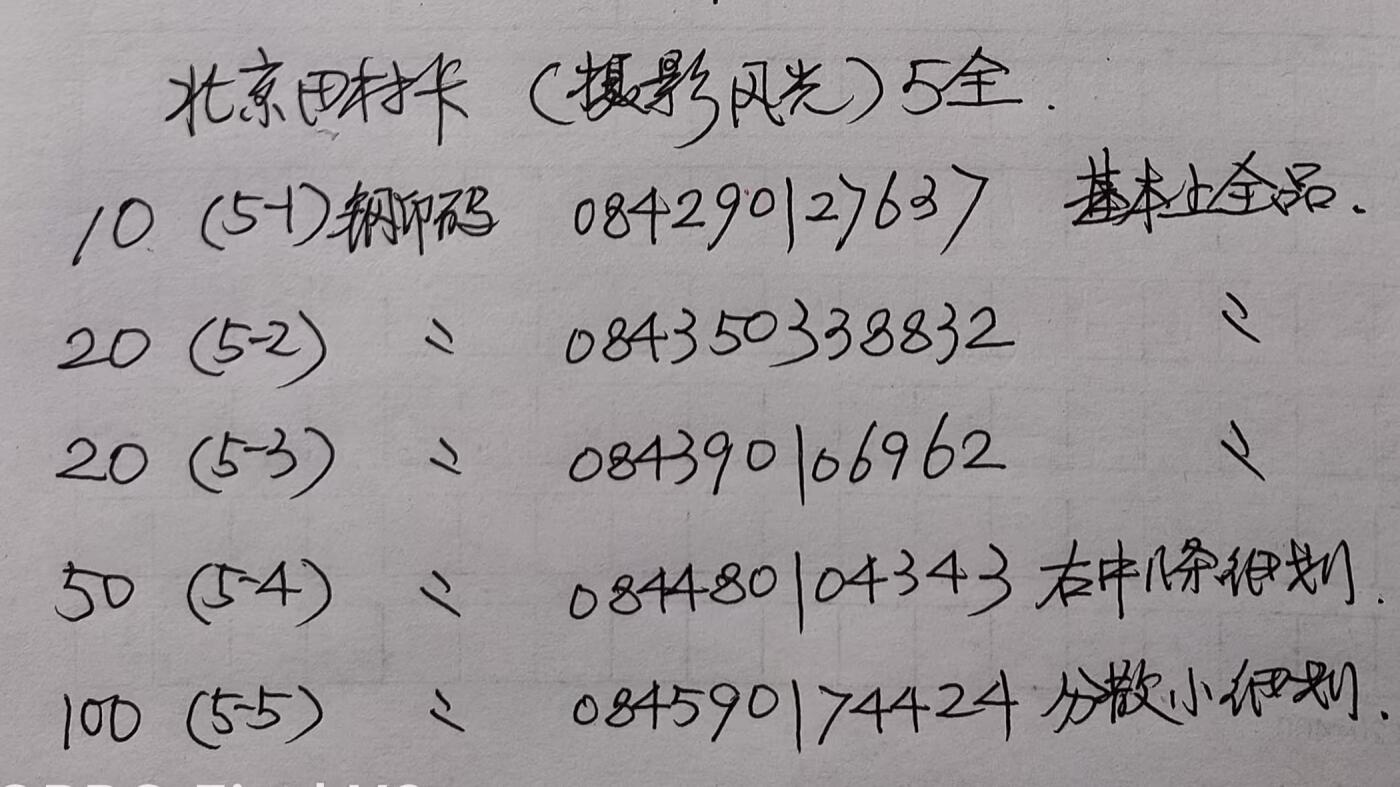 北京田村卡（摄影风光）5全.
10 (5-1) 钢印码 084290127637 基本上全品.
20 (5-2) 〃 084350338832 〃
20 (5-3) 〃 084390106962 〃
50 (5-4) 〃 084480104343 右中1条细划.
100 (5-5) 〃 084590174424 分散小细划.